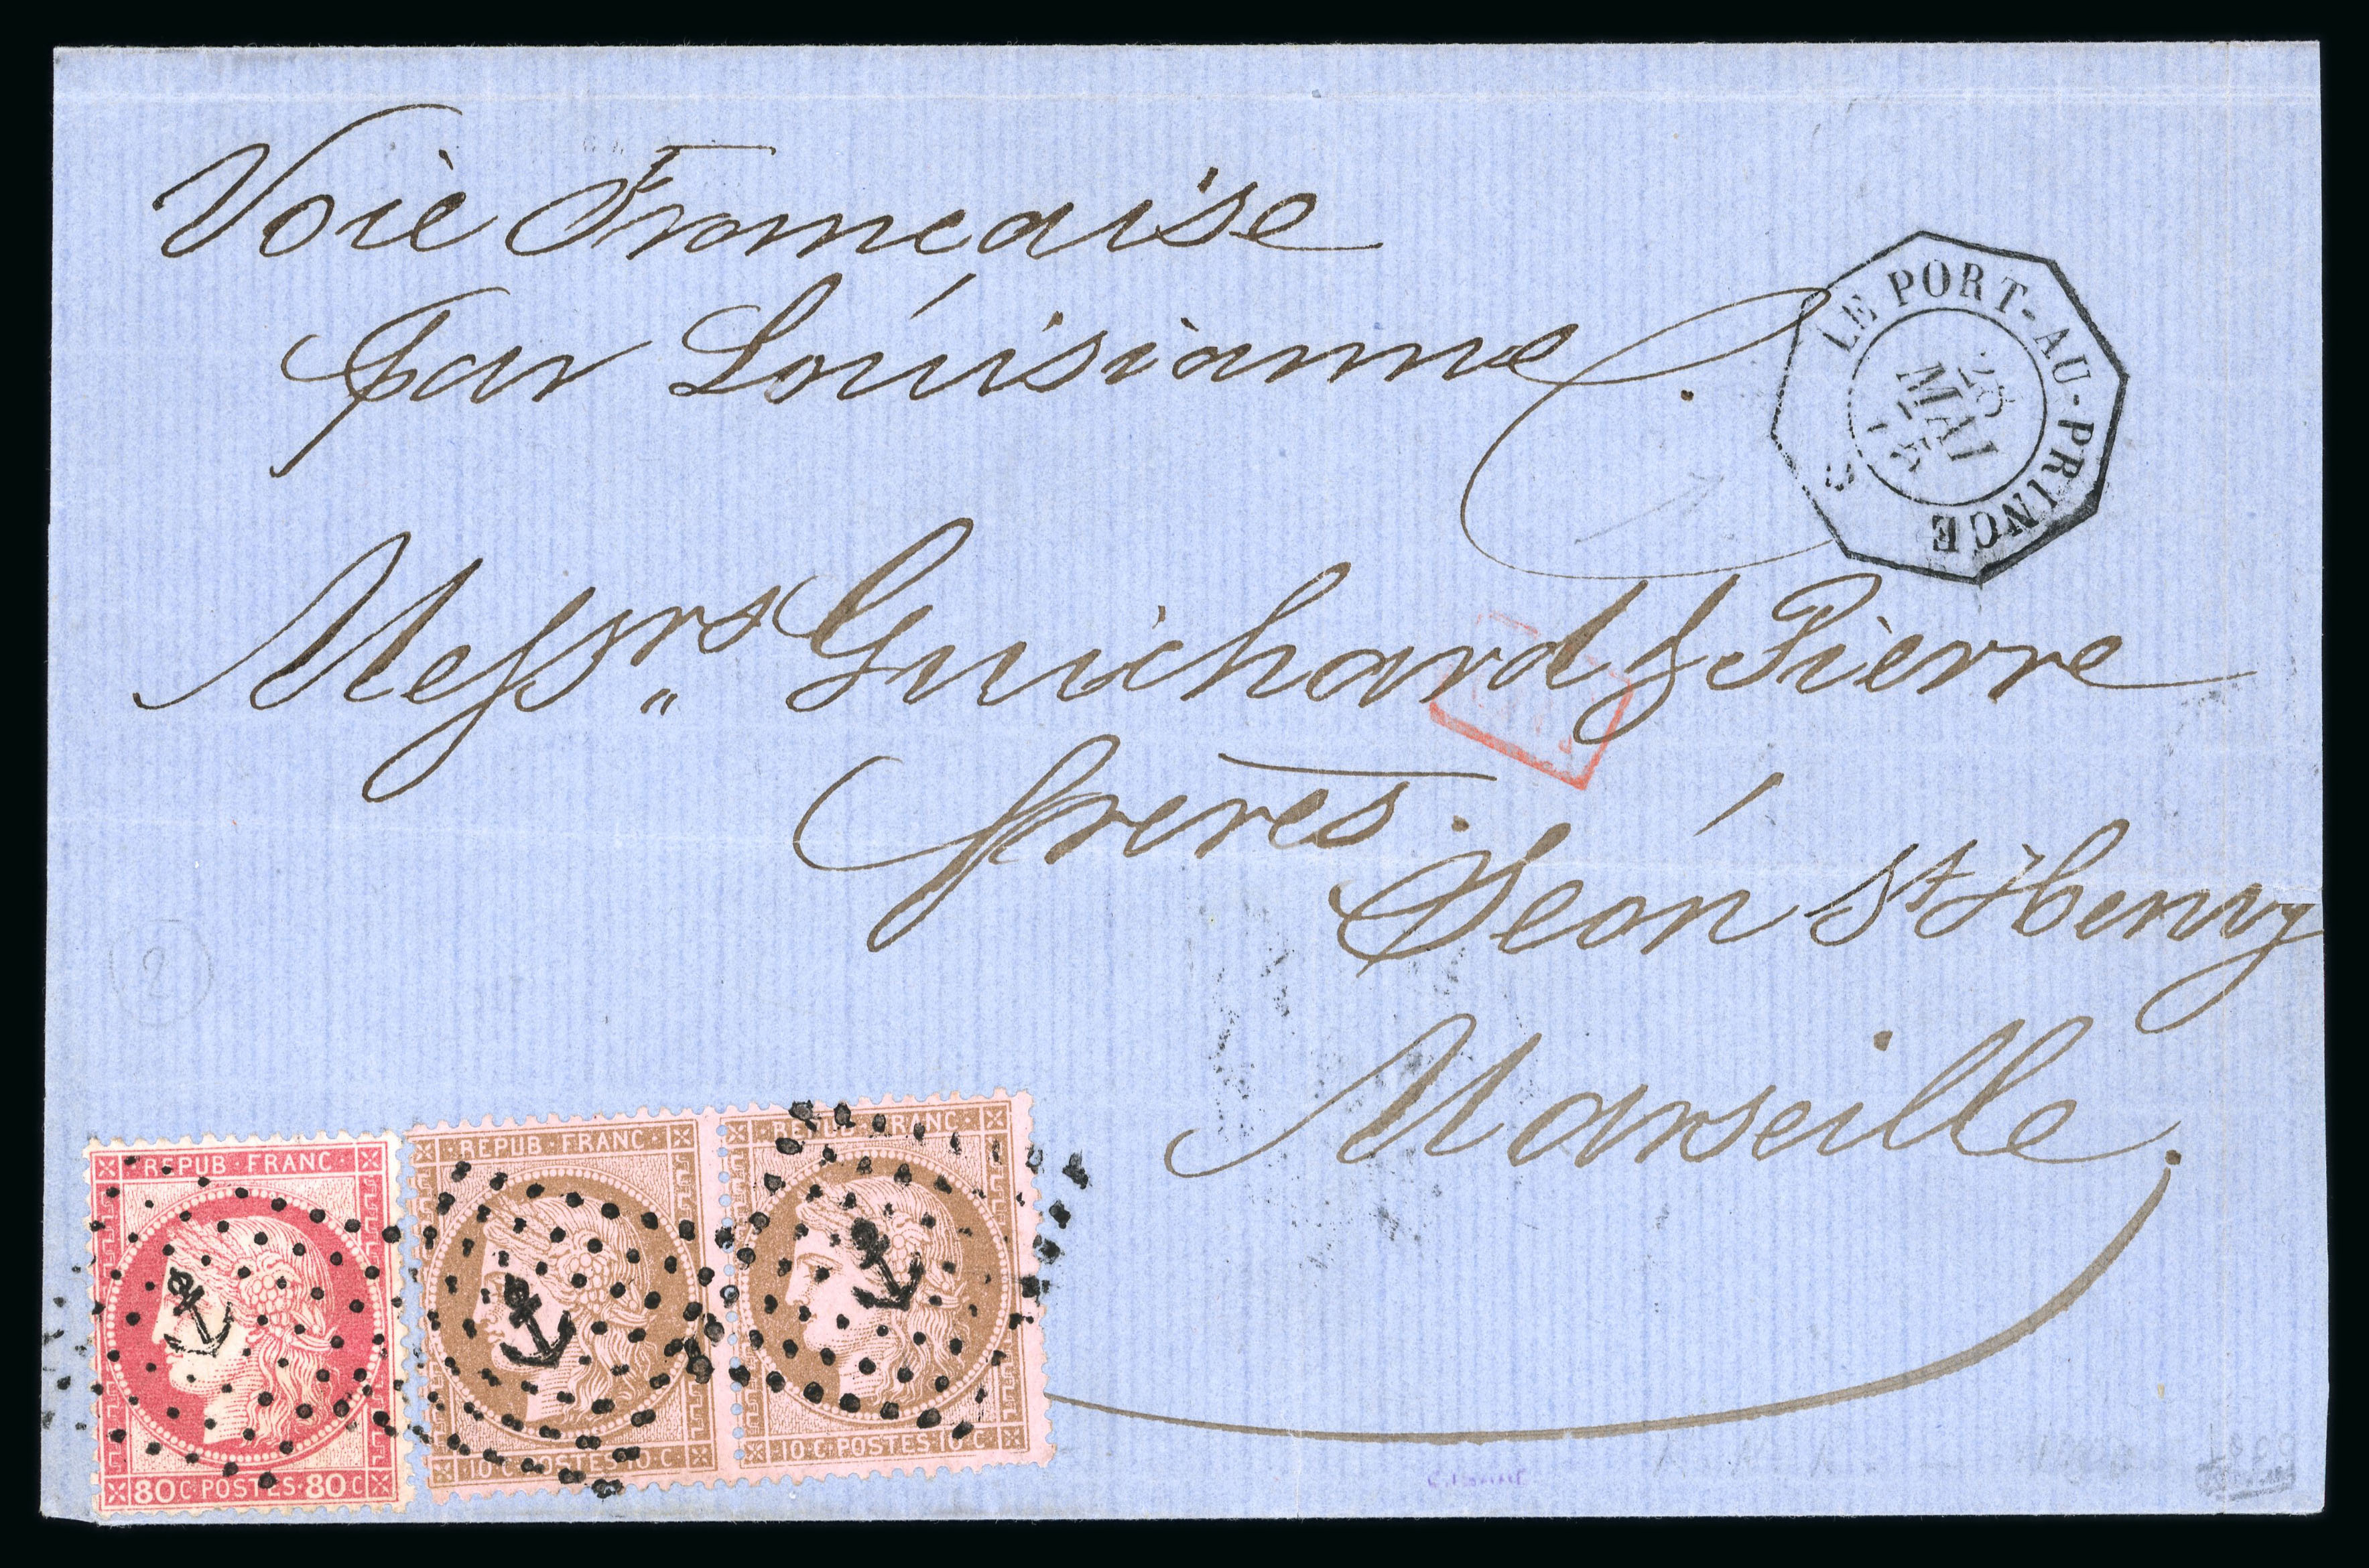 Voie Française
par Louisianne.
LE PORT-AU-PRINCE
MAI
Messrs Guichard & Pierre
frères.
Séon St Henry
Marseille.
2
REPUB · FRANC ·
80 C · POSTES · 80 C
REPUB · FRANC ·
10 · C · POSTES · 10 · C
REPUB · FRANC ·
10 · C · POSTES · 10 · C